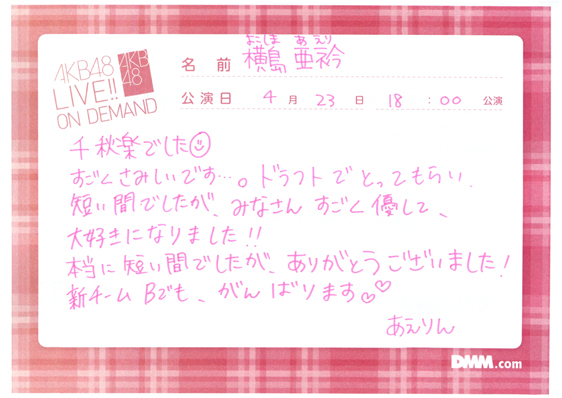 AKB48
LIVE!!
ON DEMAND
AKB
48
よこしま あえり
名前 横島 亜衿
公演日 4月 23日 18:00 公演
千秋楽でした
すごくさみしいです…。ドラフトでとってもらい
短い間でしたが、みなさんすごく優して、
大好きになりました!!
本当に短い間でしたが、ありがとうございました!
新チームBでも、がんばります♡♡
あえりん
DMM.com